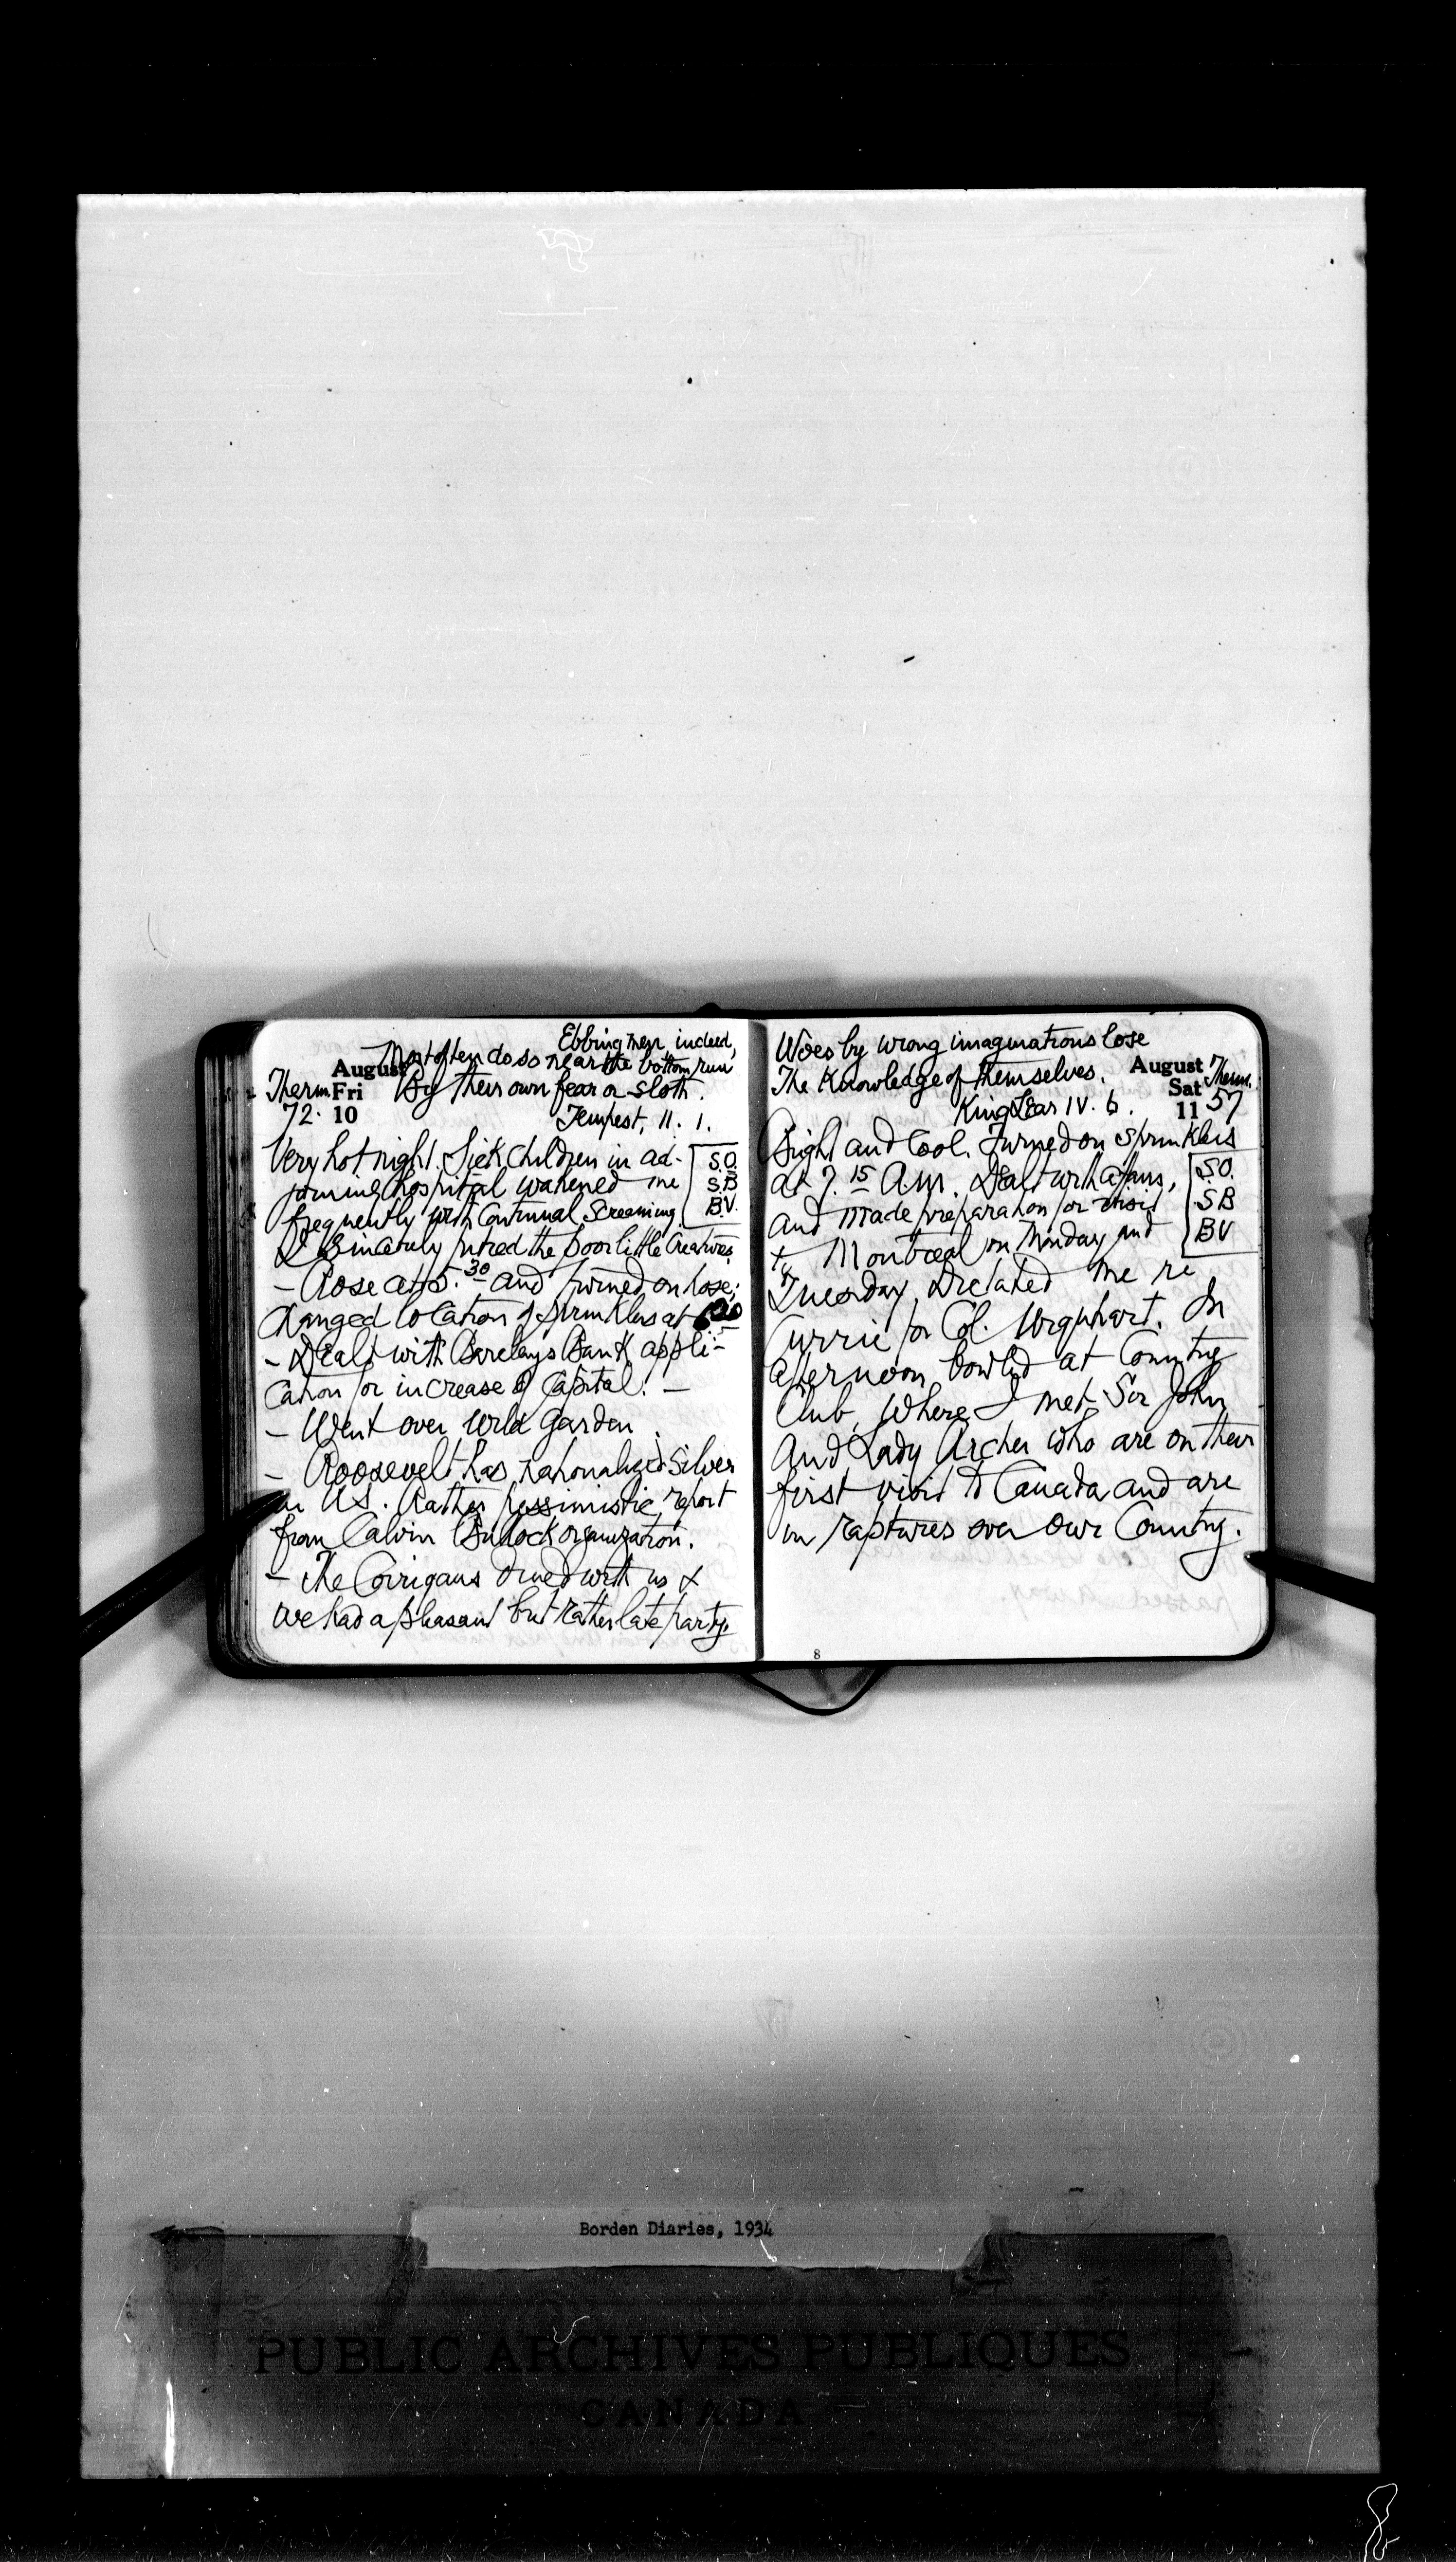 Ebbing men, indeed,
Most often do so near the bottom run
By their own fear or sloth.
Tempest, II. 1.
August
Therm. Fri
72. 10
Very hot night. Sick children in ad-
joining hospital wakened me
frequently with continual screaming.
S.O.
S.B
B.V.
I sincerely pitied the poor little creatures
- Rose at 5.30 and turned on hose;
changed location of sprinklers at
- Dealt with Barclays Bank appli-
cation for increase of Capital. -
- Went over wild garden.
- Roosevelt has nationalized silver
in U.S. Rather pessimistic report
from Calvin Bullock organization.
- The Corrigans dined with us &
we had a pleasant but rather late party.
Woes by wrong imaginations lose
The Knowledge of themselves.
King Lear IV. 6.
August
Sat Therm.
11 57
Bright and Cool. Turned on sprinklers
at 7.15 A.m. Dealt with affairs,
and made preparation for visit
to Montreal on Monday and
S.O.
S B
B V
Tuesday. Dictated me re
Currie for Col. Urquhart. In
afternoon bowled at Country
Club, where I met Sir John
and Lady Archer who are on their
first visit to Canada and are
in raptures over our Country.
8
Borden Diaries, 1934
PUBLIC ARCHIVES PUBLIQUES
CANADA